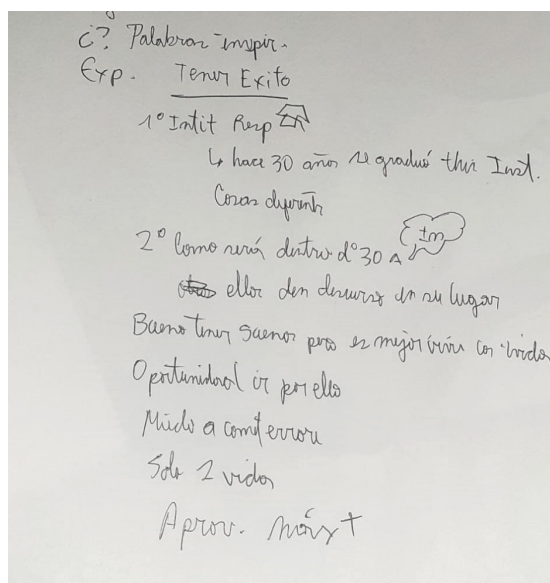 ¿? Palabras inspir.
Exp. Tener Exito
1° Intit Resp
↳ hace 30 años se graduó this Inst.
Cosas diferents
2° Como será dentro d° 30 A
Im
ellos den discurso en su lugar
Bueno tener suenos pero es mejor vivir
Oportunidad ir por ello
Miedo a comet errore
Solo 1 vida
Aprov. máx +